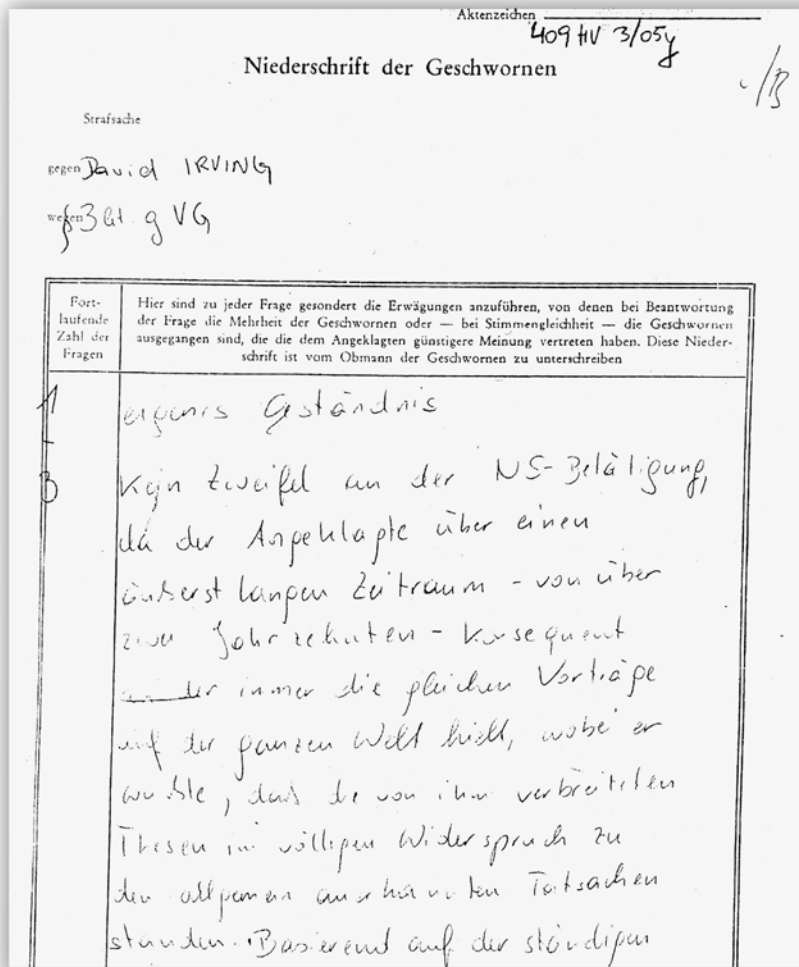 Aktenzeichen
409 HV 3/05y
Niederschrift der Geschwornen
Strafsache
gegen David IRVING
wegen § 3 lit g VG
Fort-
laufende
Zahl der
Fragen
Hier sind zu jeder Frage gesondert die Erwägungen anzuführen, von denen bei Beantwortung
der Frage die Mehrheit der Geschwornen oder — bei Stimmengleichheit — die Geschwornen
ausgegangen sind, die die dem Angeklagten günstigere Meinung vertreten haben. Diese Nieder-
schrift ist vom Obmann der Geschwornen zu unterschreiben
1
-
3
eigenes Geständnis
Kein Zweifel an der NS-Betätigung,
da der Angeklagte über einen
äußerst langen Zeitraum - von über
zwei Jahrzehnten - konsequent
immer die gleichen Vorträge
auf der ganzen Welt hielt, wobei er
wußte, daß die von ihm verbreiteten
Thesen im völligen Widerspruch zu
den allgemein anerkannten Tatsachen
standen. Basierend auf der ständigen